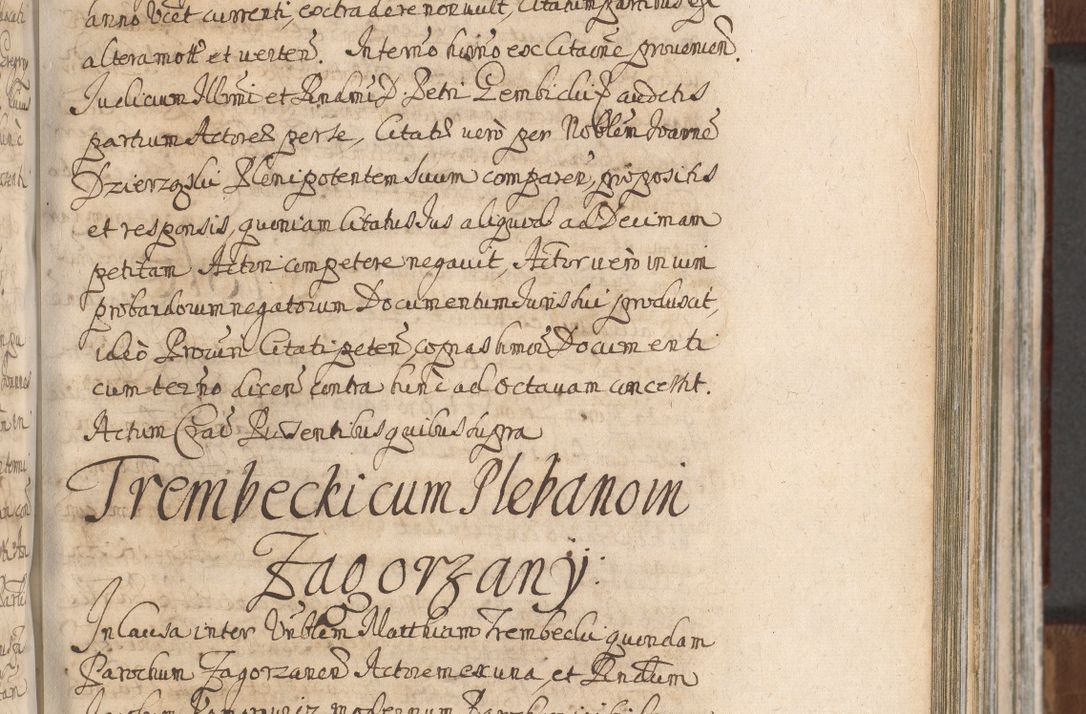 anno Vcet currenti, extradere noruult, Citatum partibus ex
altera mott et verten̄. In termo huno ex Citacne prouenien̄.
Judicium Illmi et Rndmi D. Petri Gembicki P auditis
partium Actore perse, Citati vero per Noblem Joanne
Dzierzgski Plenipotentem suum comparen, propositis
et responsis, quoniam Citatus Jus aliquod ad Decimam
petitam Actori competere negauit, Actor vero in vim
probandorum negatorum Documentum Juris sui produxit,
ideo Procurn Citati peten copias hmoi Documenti
cum termo dicen contra hunc ad octauam concessit.
Actum Crac Presentibus quibus supra
Trembecki cum Plebano in
Zagorzany.
In causa inter Vnblem Matthiam Trembecki quondam
Parochum Zagorzanen Actorem ex una, et Rndum
modernum